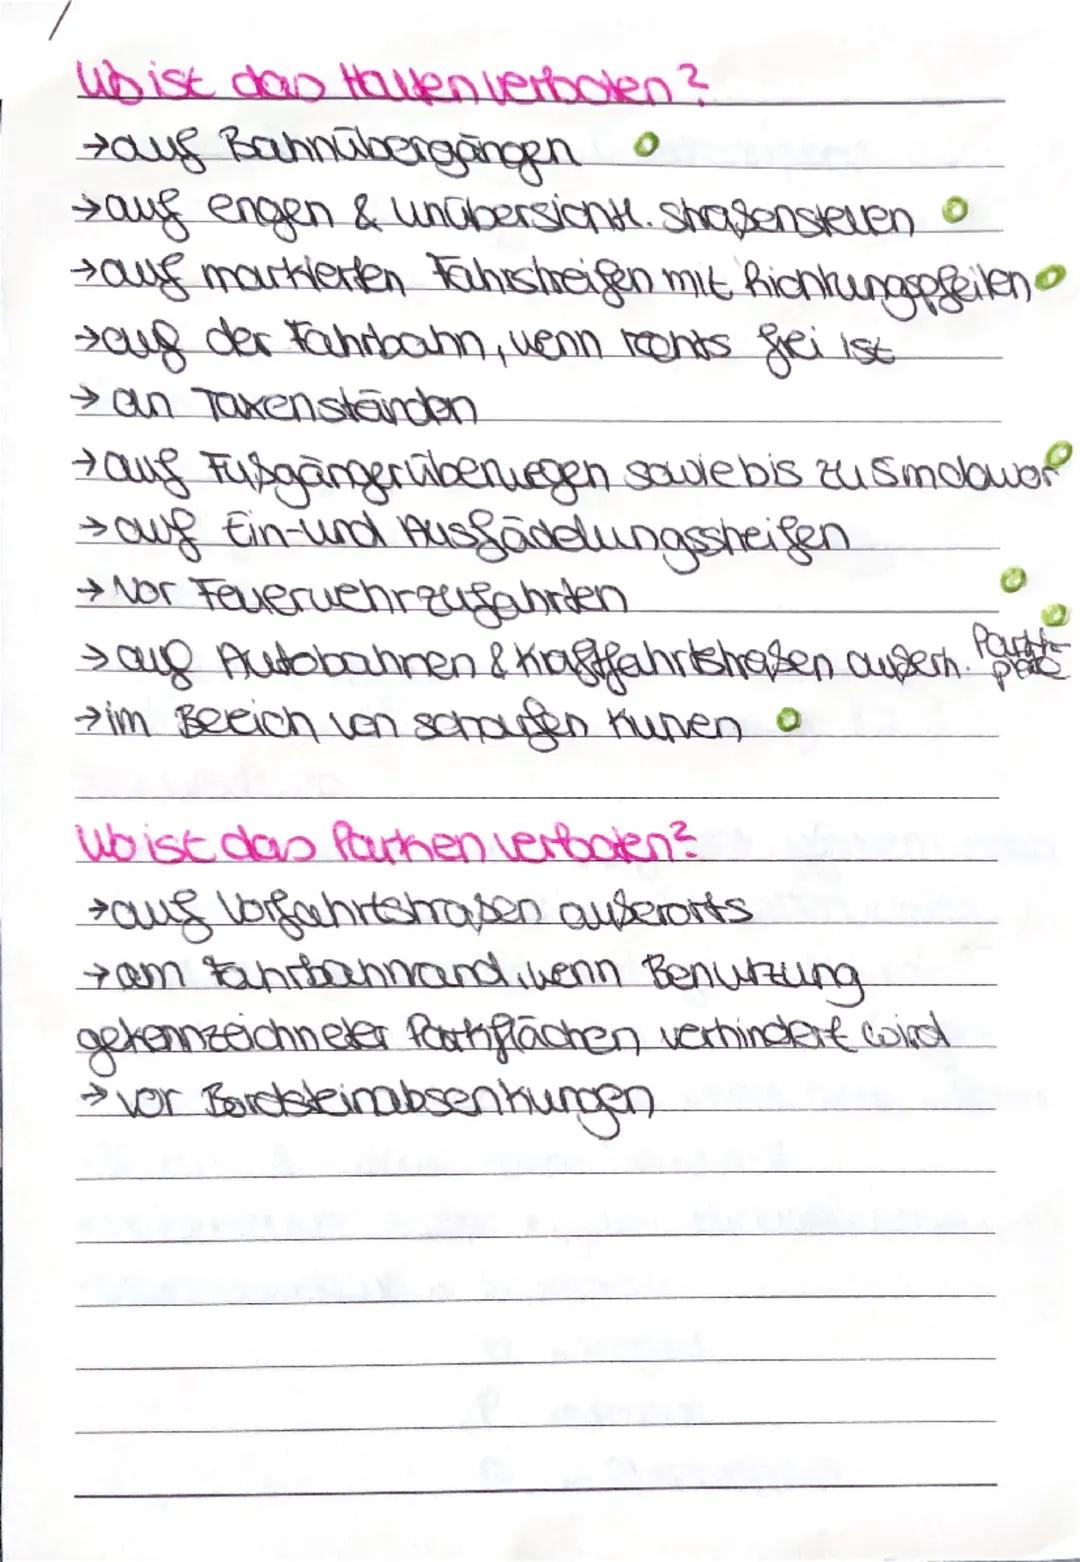 Wo ist das Halten verboten?
→ auf Bahnübergängen
→ auf engen & unübersichtl. Straßenstellen
→ auf markierten Fahrstreifen mit Richtungspfeilen
→ auf der Fahrbahn, wenn rechts frei ist
→ an Taxenständen
→ auf Fußgängerüberwegen sowie bis zu 5m davor
→ auf Ein- und Ausfädelungsstreifen
→ vor Feuerwehrzufahrten
→ auf Autobahnen & Kraftfahrtstraßen außerh. Parkt-
plätze
→ im Bereich von scharfen Kurven
Wo ist das Parken verboten?
→ auf Vorfahrtstraßen außerorts
→ am Fahrbahnrand, wenn Benutzung
gekennzeichneter Parkflächen verhindert wird
→ vor Bordsteinabsenkungen